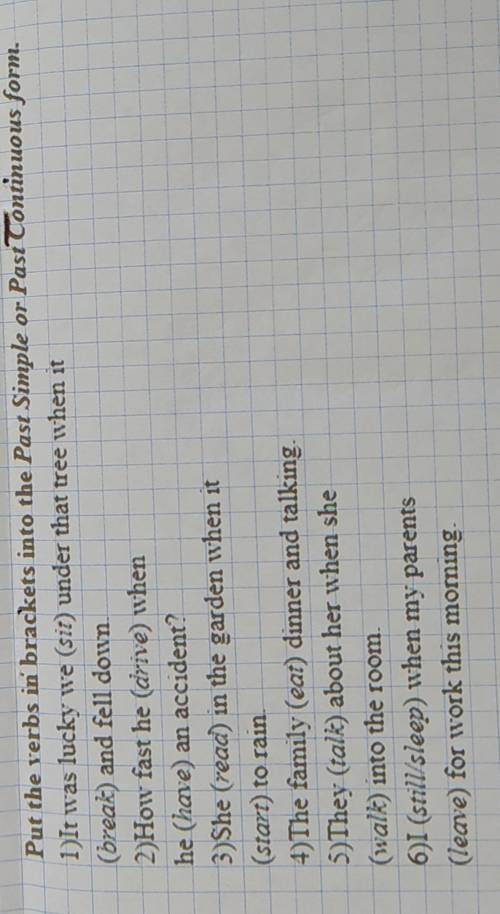 Put the verbs in brackets into the Past Simple or Past Continuous form.
1)It was lucky we (sit) under that tree when it
(break) and fell down.
2)How fast he (drive) when
he (have) an accident?
3)She (read) in the garden when it
(start) to rain.
4)The family (eat) dinner and talking.
5)They (talk) about her when she
(walk) into the room.
6)I (still/sleep) when my parents
(leave) for work this morning.